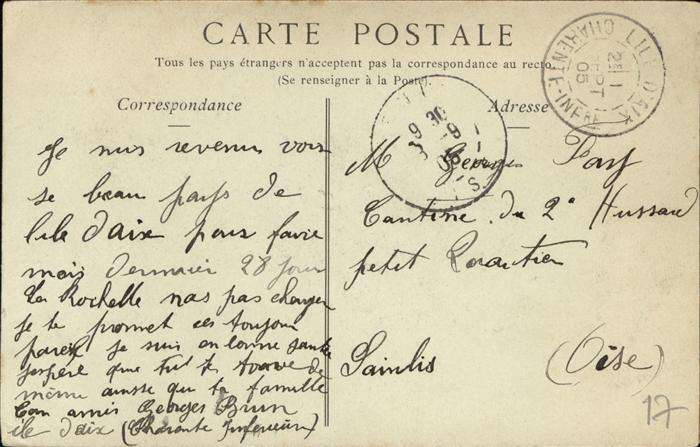 CARTE POSTALE
Tous les pays étrangers n'acceptent pas la correspondance au recto.
(Se renseigner à la Poste).
Correspondance
Je suis revenu voir
se beau pays de
l'ile d'aix pour faire
mois dernier 28 jour
La Rochelle nas pas changer
je te promet ces toujour
pareil je suis en bonne santé
jespère que tut te trouve de
même ainsse que ta famille
ton amis Georges Brun
ile d'aix (Charante Inferieur)
Adresse
M Georges Pary
Cantine du 2e Hussard
petit Quartier
Sainlis (Oise)
L'ILE D'AIX
CHARENTE-INFRE
2E 1
SEPT
05
9 30
3 9
05
17